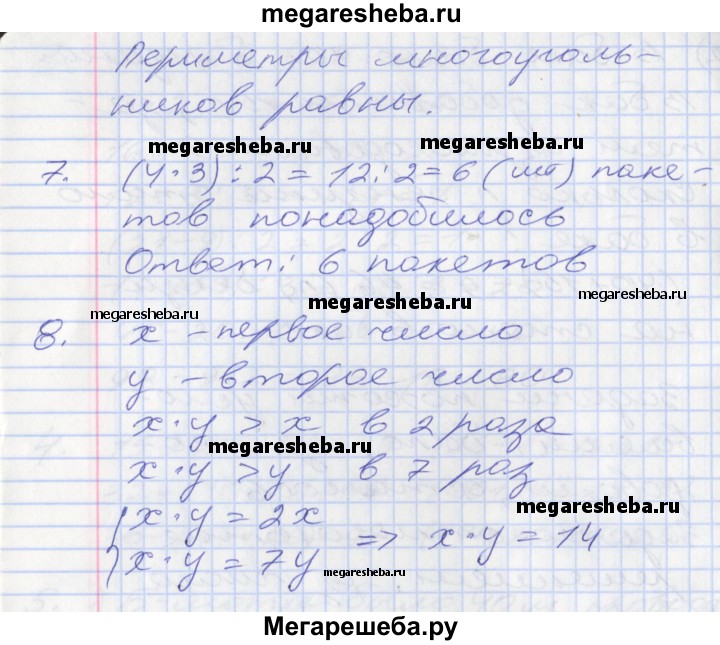 megaresheba.ru
Периметры многоуголь-
ников равны.
megaresheba.ru megaresheba.ru
7. (4·3):2=12:2=6 (шт) паке-
тов понадобилось
Ответ: 6 пакетов
megaresheba.ru megaresheba.ru megaresheba.ru
8. x - первое число
y - второе число
x·y > x в 2 раза
megaresheba.ru
x·y > y в 7 раз
megaresheba.ru
{ x·y = 2x
x·y = 7y => x·y = 14
megaresheba.ru
Мегарешеба.ру